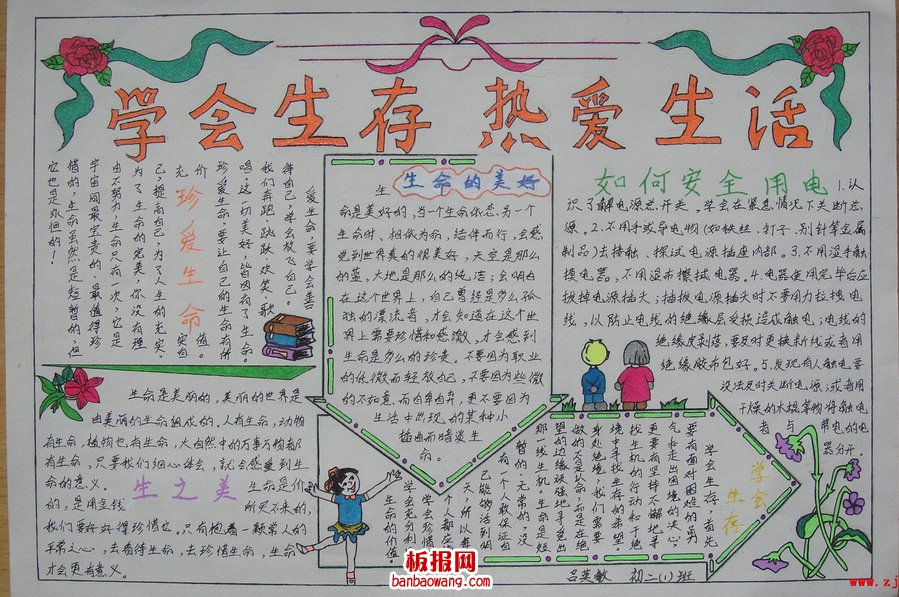 学会生存 热爱生活
爱生命,要学会善
待自己,学会放飞自己。
我们奔跑、跳跃、欢笑、歌
唱,这一切美好,皆因有了生命。
珍爱生命,要让自己的生命有所
价值。
充实自
己,提高自己,为了人生的充实,
为了生命的完美,你没有理
由不努力,生命只有一次,它是
宇宙间最宝贵的,最值得珍
惜的,生命虽然是短暂的,但
它也是永恒的!
珍爱生命
生命的美好
生
命是美好的,当一个生命依恋另一个
生命时、相依为命,结伴而行,会感
觉到世界真的很美好,天空是那么
的蓝,大地是那么的纯洁;会明白
在这个世界上,自己曾经是多么孤
独的漂流者,才会知道在这个世
界上需要珍惜和感激,才会感到
生命是多么的珍贵。不要因为职业
的低微而轻放自己,不要因为些微
的不如意,而自卑自弃,更不要因为
生活中出现的某种小
插曲而暗淡生
命。
如何安全用电
1.认
识了解电源总开关,学会在紧急情况下关断总
源。2.不用手或导电物(如铁丝、钉子、别针等金属
制品)去接触、探试电源插座内部。3.不用湿手触
摸电器,不用湿布擦拭电器。4.电器使用完毕后应
拔掉电源插头;插拔电源插头时不要用力拉拽电
线,以防止电线的绝缘层受损造成触电;电线的
绝缘皮剥落,要及时更换新线或者用
绝缘胶布包好。5.发现有人触电要
设法及时关断电源;或者用
干燥的木棍等物将触电
者与带电的电
器分开。
生命是美丽的,美丽的世界是
由美丽的生命组成的。人有生命,动物
有生命,植物也有生命,大自然中的万事万物都
有生命,只要我们细心体会,就会感受到生
命的意义。
生之美
生命是价
的,是用金钱
所买不来的,
我们要好好得珍惜它。只有抱着一颗常人的
平常之心,去看待生命,去珍惜生命,生命
才会更有意义。
学会生存
学会生存,首先
要有面对困难的勇
气和走出困境的决心,
更有坚持不懈地寻
找生机的行动。
吕英敏 初二(1)班
板报网
banbaowang.com
www.zj